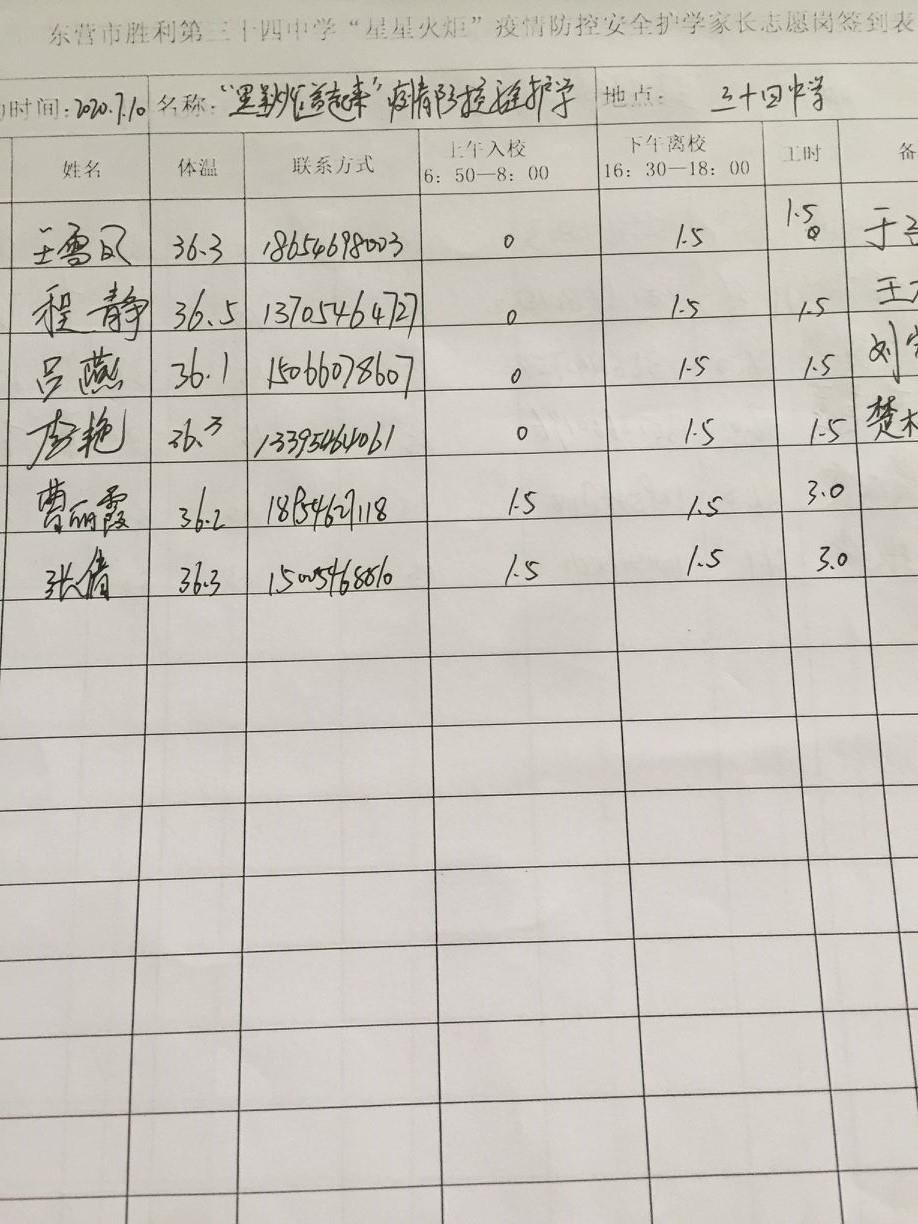 东营市胜利第三十四中学“星星火炬”疫情防控安全护学家长志愿岗签到表
时间:2020.7.10 名称: 疫情防控安全护学 地点: 三十四中学
姓名 体温 联系方式 上午入校 6:50—8:00 下午离校 16:30—18:00 工时 备
王雪凤 36.3 18654698003 0 1.5 1.5 于
程静 36.5 13705464727 0 1.5 1.5 王
吕燕 36.1 15066078607 0 1.5 1.5 刘
李艳 36.3 13395464061 0 1.5 1.5 楚
曹丽霞 36.2 1.5 1.5 3.0
张倩 36.3 1.5 1.5 3.0